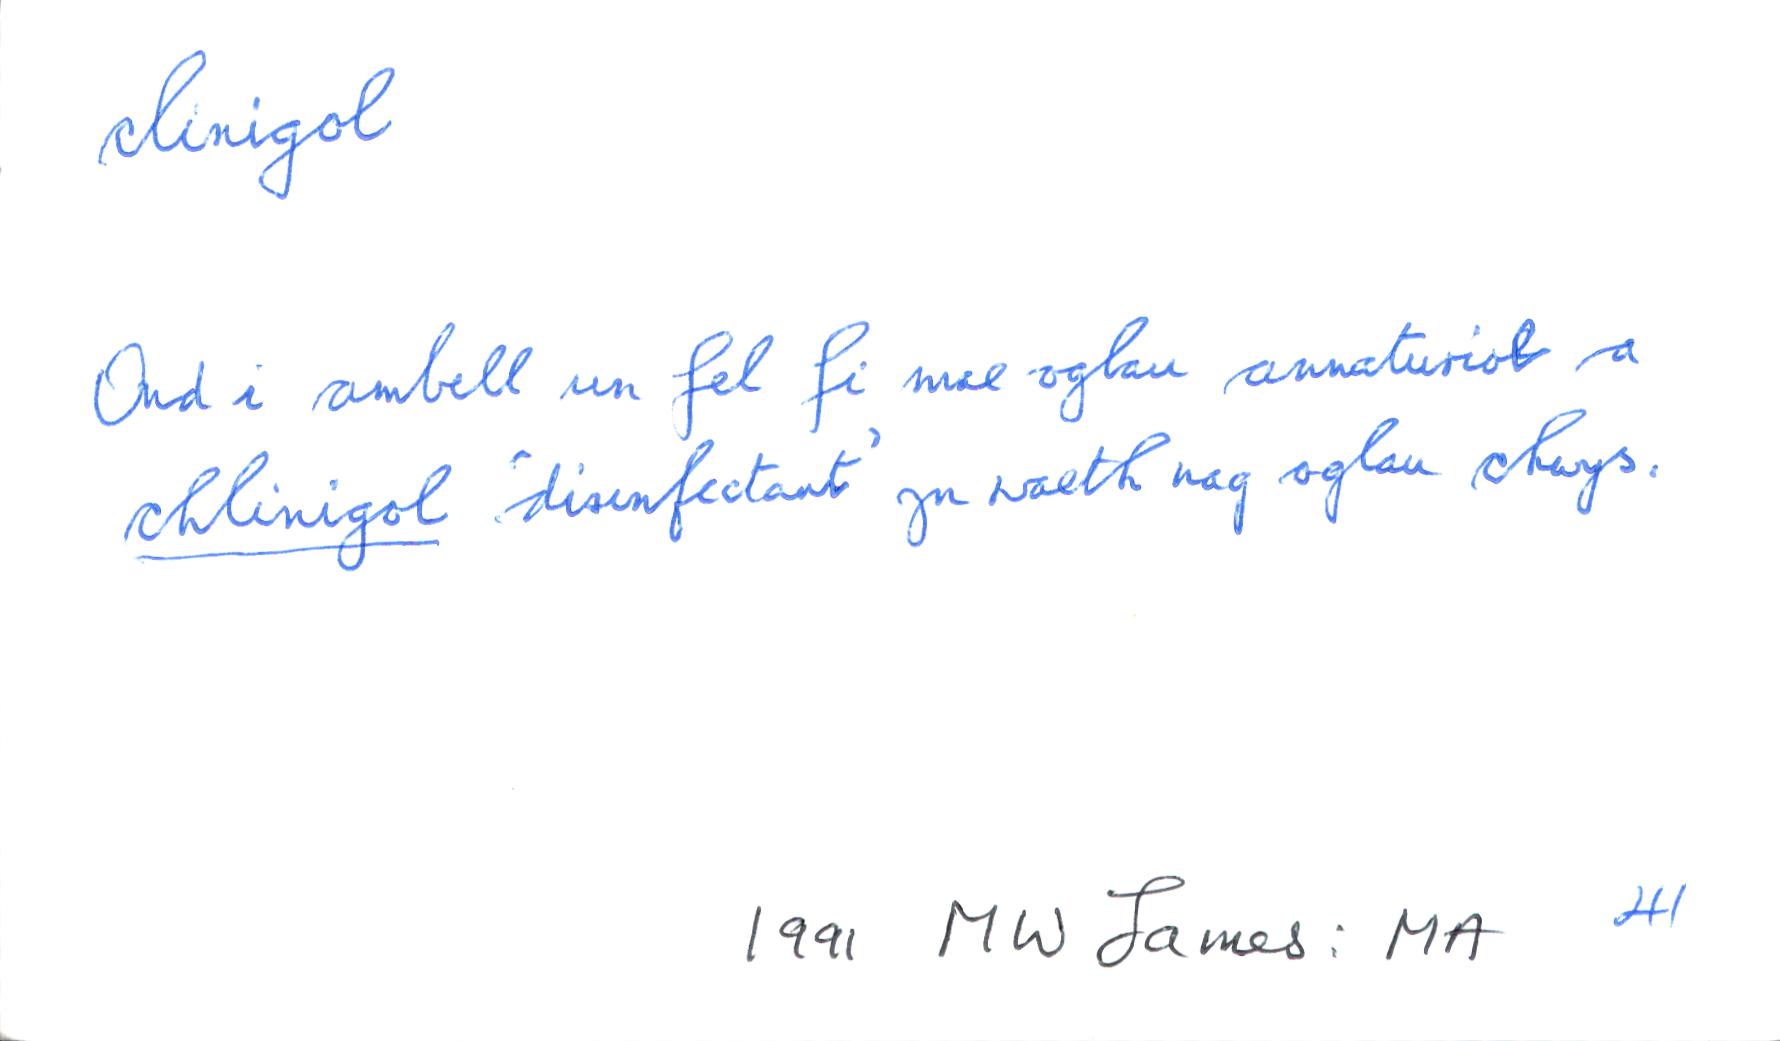 clinigol
Ond i ambell un fel fi mae oglau annaturiol a
chlinigol 'disinfectant' yn waeth nag oglau chwys.
1991 MW James: MA 41